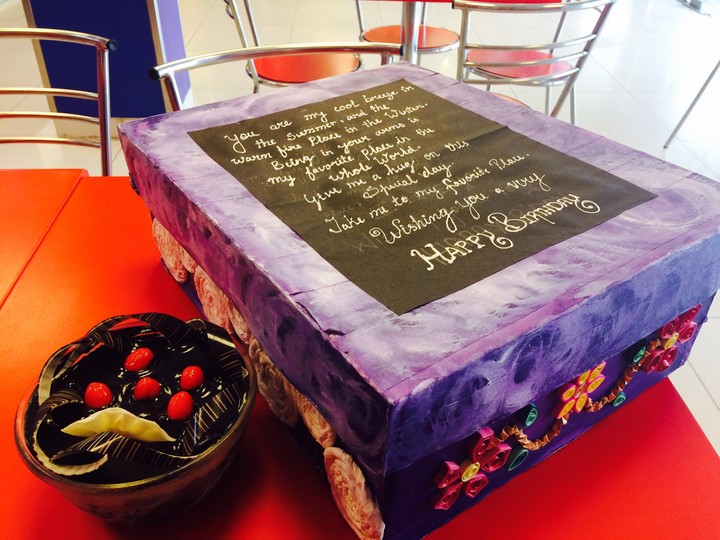 You are my cool breeze in
the Summer and the
warm fire Place in the Winter.
Being in your arms is
my favorite Place in the
whole World.
Give me a hug on this
Special day.
Take me to my favorite You.
Wishing You a very
HAPPY BIRTHDAY